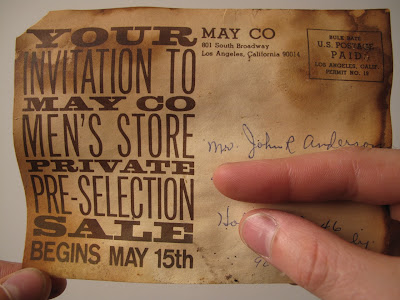 YOUR
INVITATION TO
MAY CO
MEN'S STORE
PRIVATE
PRE-SELECTION
SALE
BEGINS MAY 15th
MAY CO
801 South Broadway
Los Angeles, California 90014
BULK RATE
U.S. POSTAGE
PAID
LOS ANGELES, CALIF.
PERMIT NO. 18
Mrs. John R Anderson
46